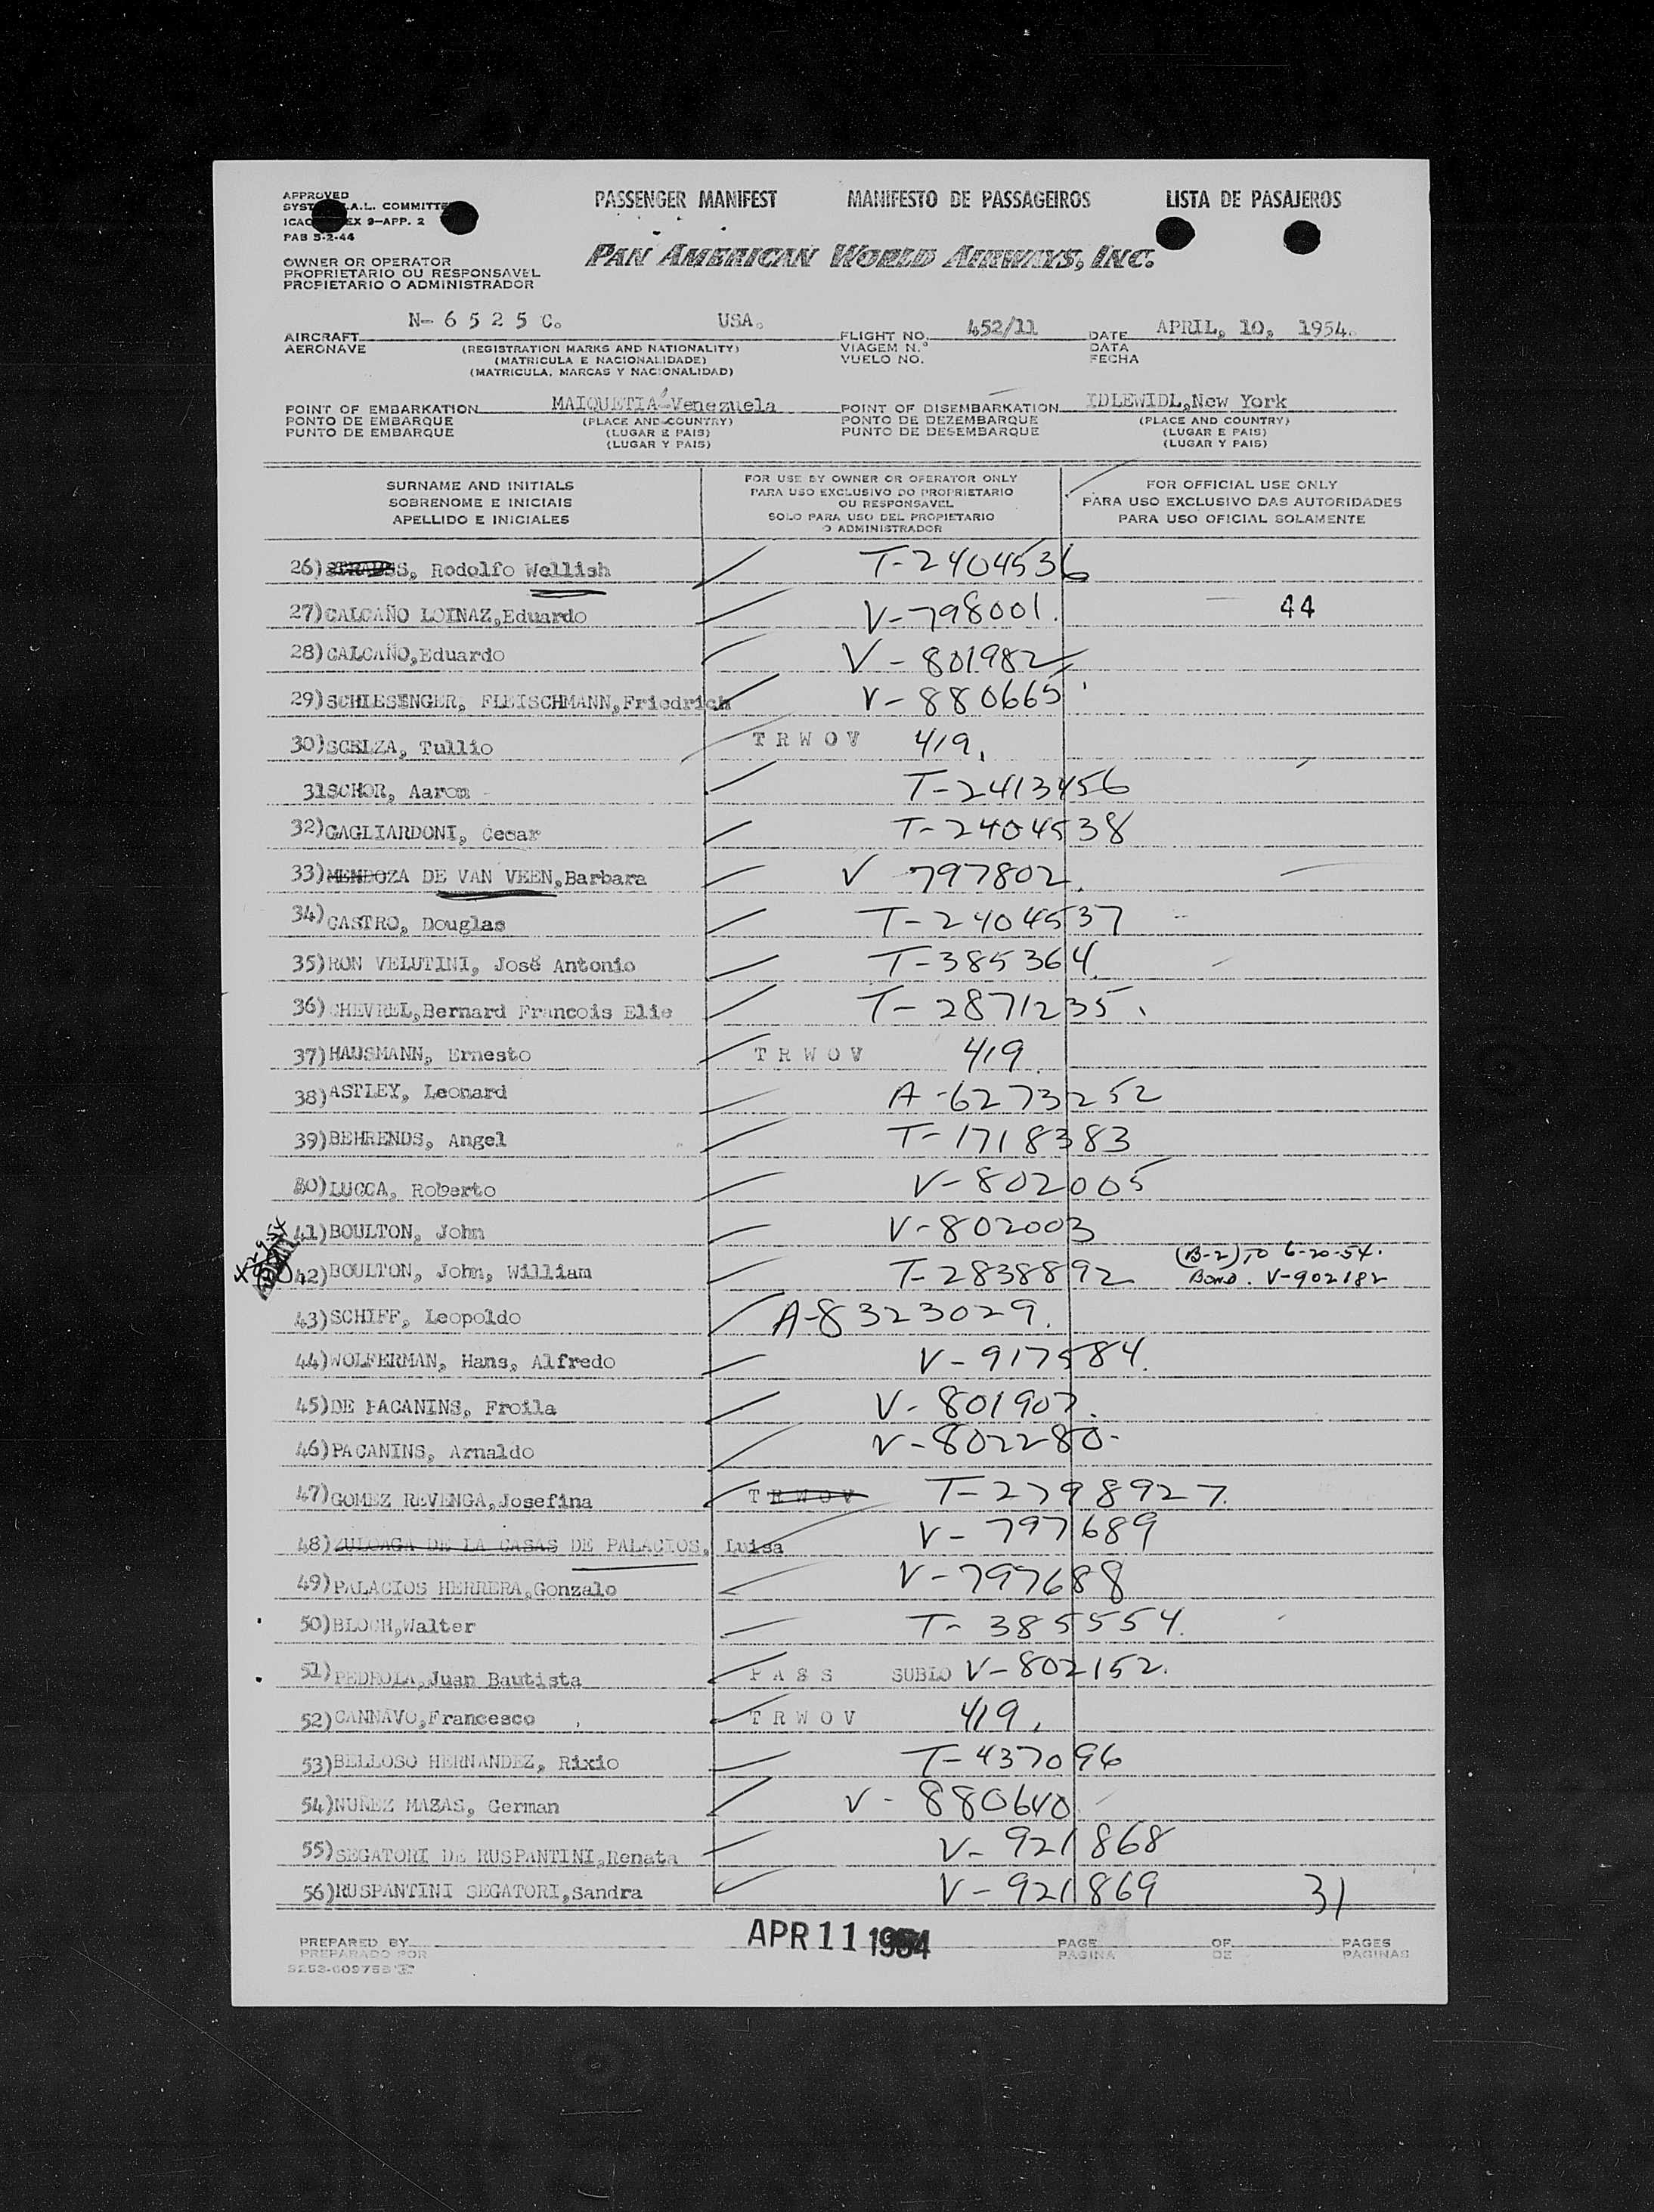 APPROVED
SYST A.L. COMMITTE
ICAO EX 9—APP. 2
PAB 5-2-44
PASSENGER MANIFEST MANIFESTO DE PASSAGEIROS LISTA DE PASAJEROS
PAN AMERICAN WORLD AIRWAYS, INC.
OWNER OR OPERATOR
PROPRIETARIO OU RESPONSAVEL
PROPIETARIO O ADMINISTRADOR
AIRCRAFT N- 6 5 2 5 C. USA. FLIGHT NO. 452/11 DATE APRIL, 10, 1954.
AERONAVE (REGISTRATION MARKS AND NATIONALITY) VIAGEM N.º DATA
(MATRICULA E NACIONALIDADE) VUELO NO. FECHA
(MATRICULA, MARCAS Y NACIONALIDAD)
POINT OF EMBARKATION MAIQUETIA-Venezuela POINT OF DISEMBARKATION IDLEWIDL,New York
PONTO DE EMBARQUE (PLACE AND COUNTRY) PONTO DE DEZEMBARQUE (PLACE AND COUNTRY)
PUNTO DE EMBARQUE (LUGAR E PAIS) PUNTO DE DESEMBARQUE (LUGAR E PAIS)
(LUGAR Y PAIS) (LUGAR Y PAIS)
SURNAME AND INITIALS
SOBRENOME E INICIAIS
APELLIDO E INICIALES
FOR USE BY OWNER OR OPERATOR ONLY
PARA USO EXCLUSIVO DO PROPRIETARIO
OU RESPONSAVEL
SOLO PARA USO DEL PROPIETARIO
O ADMINISTRADOR
FOR OFFICIAL USE ONLY
PARA USO EXCLUSIVO DAS AUTORIDADES
PARA USO OFICIAL SOLAMENTE
26) STRAUSS, Rodolfo Wellish T-2404536
27) CALCAÑO LOINAZ,Eduardo V-798001. 44
28) CALCAÑO,Eduardo V-801982
29) SCHLESINGER, FLEISCHMANN,Friedrich V-880665
30) SCELZA, Tullio T R W O V 419.
31SCHOR, Aarom T-2413456
32) GAGLIARDONI, Cesar T-2404538
33) MENDOZA DE VAN VEEN,Barbara V 797802.
34) CASTRO, Douglas T-2404537
35) RON VELUTINI, José Antonio T-385364.
36) CHEVREL,Bernard Francois Elie T-2871235.
37) HAUSMANN, Ernesto T R W O V 419
38) ASTLEY, Leonard A-6273252
39) BEHRENDS, Angel T-1718383
40) LUCCA, Roberto V-802005
41) BOULTON, John V-802003
42) BOULTON, John, William T-2838892 (B-2) TO 6-20-54.
BOND. V-902182
43) SCHIFF, Leopoldo A-8323029.
44) WOLFERMAN, Hans, Alfredo V-917584.
45) DE PACANINS, Froila V-801907.
46) PACANINS, Arnaldo V-802280-
47) GOMEZ REVENGA,Josefina T R W O V T-2798927.
48) ZULOAGA DE LA CASAS DE PALACIOS, Luisa V-797689
49) PALACIOS HERRERA,Gonzalo V-797688
50) BLOCH,Walter T-385554.
51) PEDROLA,Juan Bautista P A S S SUBLO V-802152.
52) CANNAVO,Francesco T R W O V 419.
53) BELLOSO HERNANDEZ, Rixio T-437096
54) NUÑEZ MAZAS, German V-880640
55) SEGATORI DE RUSPANTINI,Renata V-921868
56) RUSPANTINI SEGATORI,Sandra V-921869 31
APR 11 1954
PREPARED BY PAGE OF PAGES
PREPARADO POR PAGINA DE PAGINAS